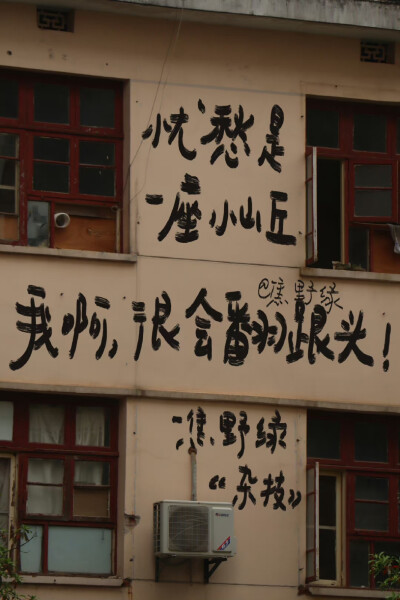 忧愁是
一座小山丘
@焦野绿
我啊,很会翻跟头!
焦野绿
《杂技》